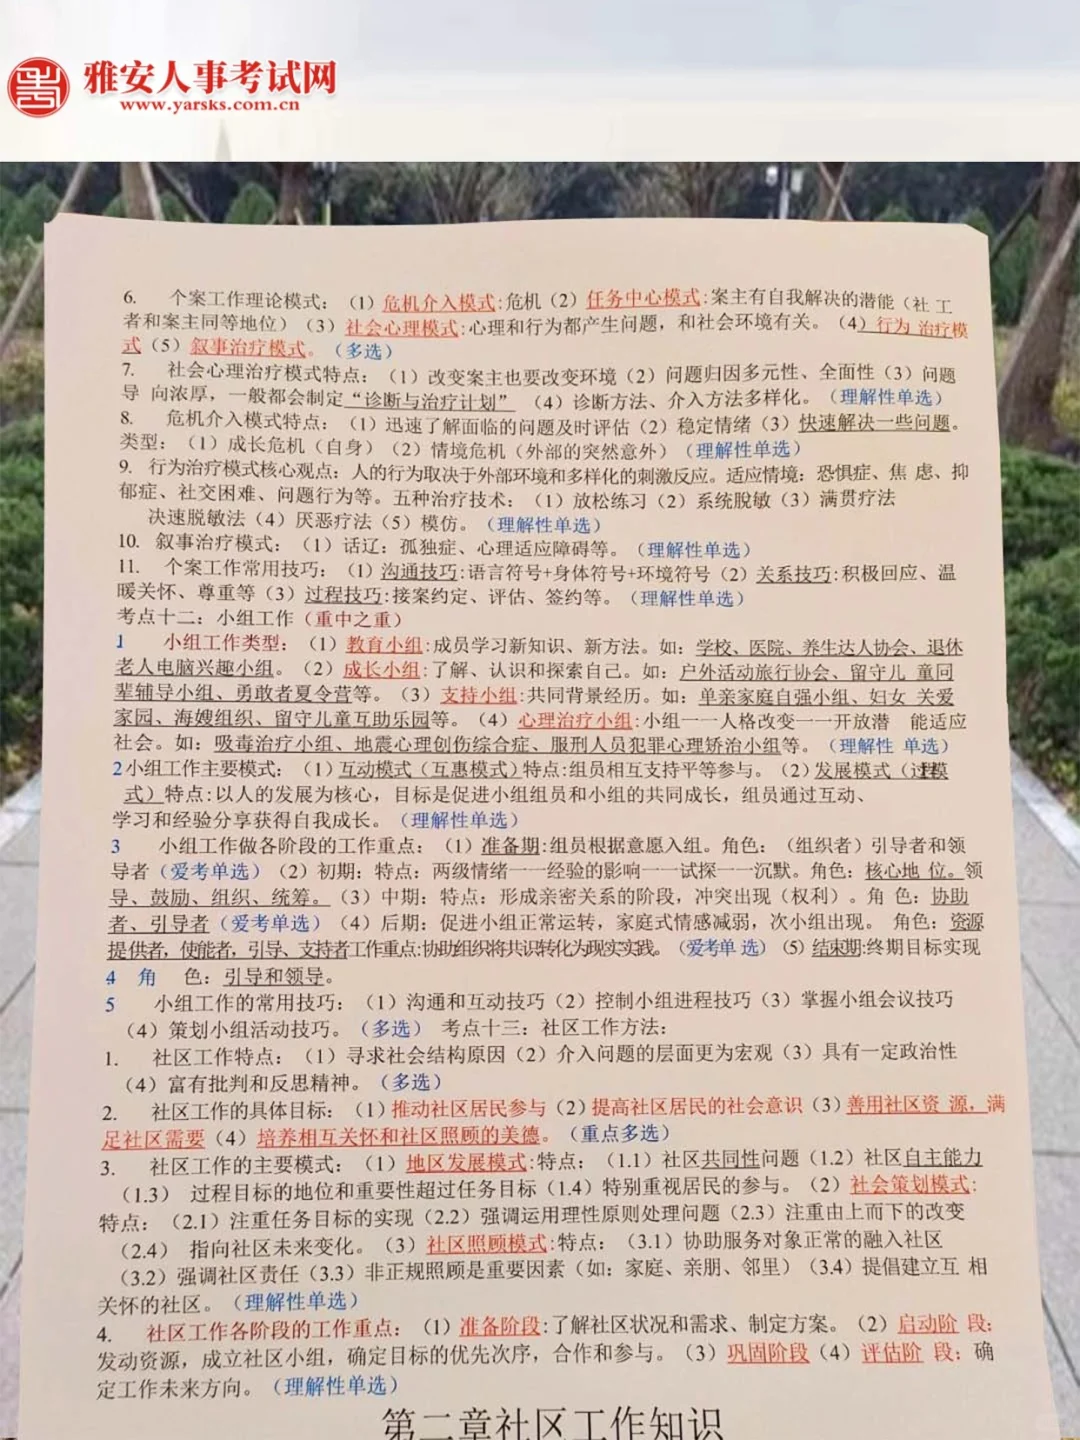 雅安人事考试网
www.yarsks.com.cn
6. 个案工作理论模式：（1）危机介入模式:危机（2）任务中心模式:案主有自我解决的潜能（社 工
者和案主同等地位）（3）社会心理模式:心理和行为都产生问题，和社会环境有关。（4）行为 治疗模
式（5）叙事治疗模式。（多选）
7. 社会心理治疗模式特点：（1）改变案主也要改变环境（2）问题归因多元性、全面性（3）问题
导 向浓厚，一般都会制定“诊断与治疗计划”（4）诊断方法、介入方法多样化。（理解性单选）
8. 危机介入模式特点：（1）迅速了解面临的问题及时评估（2）稳定情绪（3）快速解决一些问题。
类型：（1）成长危机（自身）（2）情境危机（外部的突然意外）（理解性单选）
9. 行为治疗模式核心观点：人的行为取决于外部环境和多样化的刺激反应。适应情境：恐惧症、焦 虑、抑
郁症、社交困难、问题行为等。五种治疗技术：（1）放松练习（2）系统脱敏（3）满贯疗法
决速脱敏法（4）厌恶疗法（5）模仿。（理解性单选）
10. 叙事治疗模式：（1）话辽：孤独症、心理适应障碍等。（理解性单选）
11. 个案工作常用技巧：（1）沟通技巧:语言符号+身体符号+环境符号（2）关系技巧:积极回应、温
暖关怀、尊重等（3）过程技巧:接案约定、评估、签约等。（理解性单选）
考点十二：小组工作（重中之重）
1 小组工作类型：（1）教育小组:成员学习新知识、新方法。如：学校、医院、养生达人协会、退休
老人电脑兴趣小组。（2）成长小组:了解、认识和探索自己。如：户外活动旅行协会、留守儿 童同
辈辅导小组、勇敢者夏令营等。（3）支持小组:共同背景经历。如：单亲家庭自强小组、妇女 关爱
家园、海嫂组织、留守儿童互助乐园等。（4）心理治疗小组:小组一一人格改变一一开放潜 能适应
社会。如：吸毒治疗小组、地震心理创伤综合症、服刑人员犯罪心理矫治小组等。（理解性 单选）
2 小组工作主要模式：（1）互动模式（互惠模式）特点:组员相互支持平等参与。（2）发展模式（过程模
式）特点:以人的发展为核心，目标是促进小组组员和小组的共同成长，组员通过互动、
学习和经验分享获得自我成长。（理解性单选）
3 小组工作做各阶段的工作重点：（1）准备期:组员根据意愿入组。角色：（组织者）引导者和领
导者（爱考单选）（2）初期：特点：两级情绪一一经验的影响一一试探一一沉默。角色：核心地 位。领
导、鼓励、组织、统筹。（3）中期：特点：形成亲密关系的阶段，冲突出现（权利）。角 色：协助
者、引导者（爱考单选）（4）后期：促进小组正常运转，家庭式情感减弱，次小组出现。 角色：资源
提供者，使能者，引导、支持者工作重点:协助组织将共识转化为现实实践。（爱考单 选）（5）结束期:终期目标实现
4 角 色：引导和领导。
5 小组工作的常用技巧：（1）沟通和互动技巧（2）控制小组进程技巧（3）掌握小组会议技巧
（4）策划小组活动技巧。（多选） 考点十三：社区工作方法：
1. 社区工作特点：（1）寻求社会结构原因（2）介入问题的层面更为宏观（3）具有一定政治性
（4）富有批判和反思精神。（多选）
2. 社区工作的具体目标：（1）推动社区居民参与（2）提高社区居民的社会意识（3）善用社区资 源，满
足社区需要（4）培养相互关怀和社区照顾的美德。（重点多选）
3. 社区工作的主要模式：（1）地区发展模式:特点：（1.1）社区共同性问题（1.2）社区自主能力
（1.3） 过程目标的地位和重要性超过任务目标（1.4）特别重视居民的参与。（2）社会策划模式:
特点：（2.1）注重任务目标的实现（2.2）强调运用理性原则处理问题（2.3）注重由上而下的改变
（2.4） 指向社区未来变化。（3）社区照顾模式:特点：（3.1）协助服务对象正常的融入社区
（3.2）强调社区责任（3.3）非正规照顾是重要因素（如：家庭、亲朋、邻里）（3.4）提倡建立互 相
关怀的社区。（理解性单选）
4. 社区工作各阶段的工作重点：（1）准备阶段:了解社区状况和需求、制定方案。（2）启动阶 段:
发动资源，成立社区小组，确定目标的优先次序，合作和参与。（3）巩固阶段（4）评估阶 段：确
定工作未来方向。（理解性单选）
第二章社区工作知识